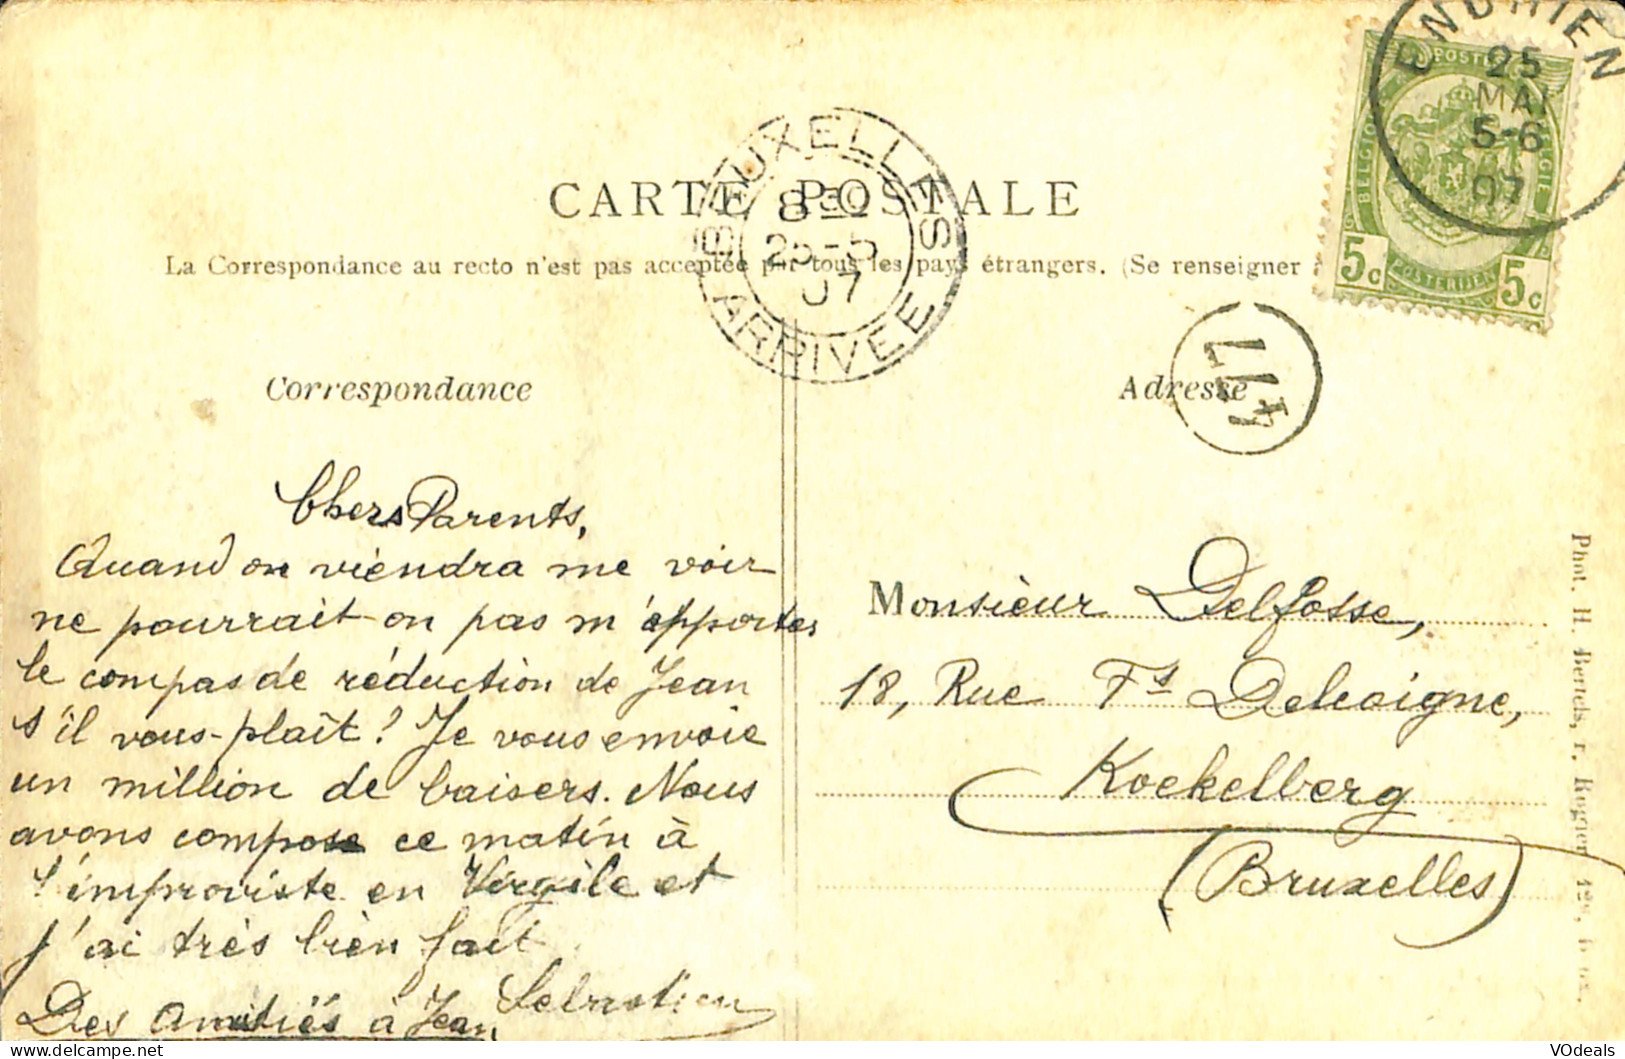 CARTE POSTALE
La Correspondance au recto n'est pas acceptée par tous les pays étrangers. (Se renseigner
BRUXELLES
8
25-5
07
ARRIVEE
ENGHIEN
25
MAI
5-6
07
POSTE
BELGIQUE
BELGIË
5c
POSTERIJEN
5c
Correspondance
Adresse
Chers Parents,
Quand on viendra me voir
ne pourrait-on pas m'apporter
le compas de réduction de Jean
s'il vous-plaît? Je vous envoie
un million de baisers. Nous
avons compose ce matin à
l'improviste en Virgile et
j'ai très bien fait
Sébastien
Des Amitiés à Jean
Monsieur Delfosse,
18, Rue Fs Delcoigne,
Koekelberg
(Bruxelles)
Phot. H. Bertels, r. Rogier
VOdeals